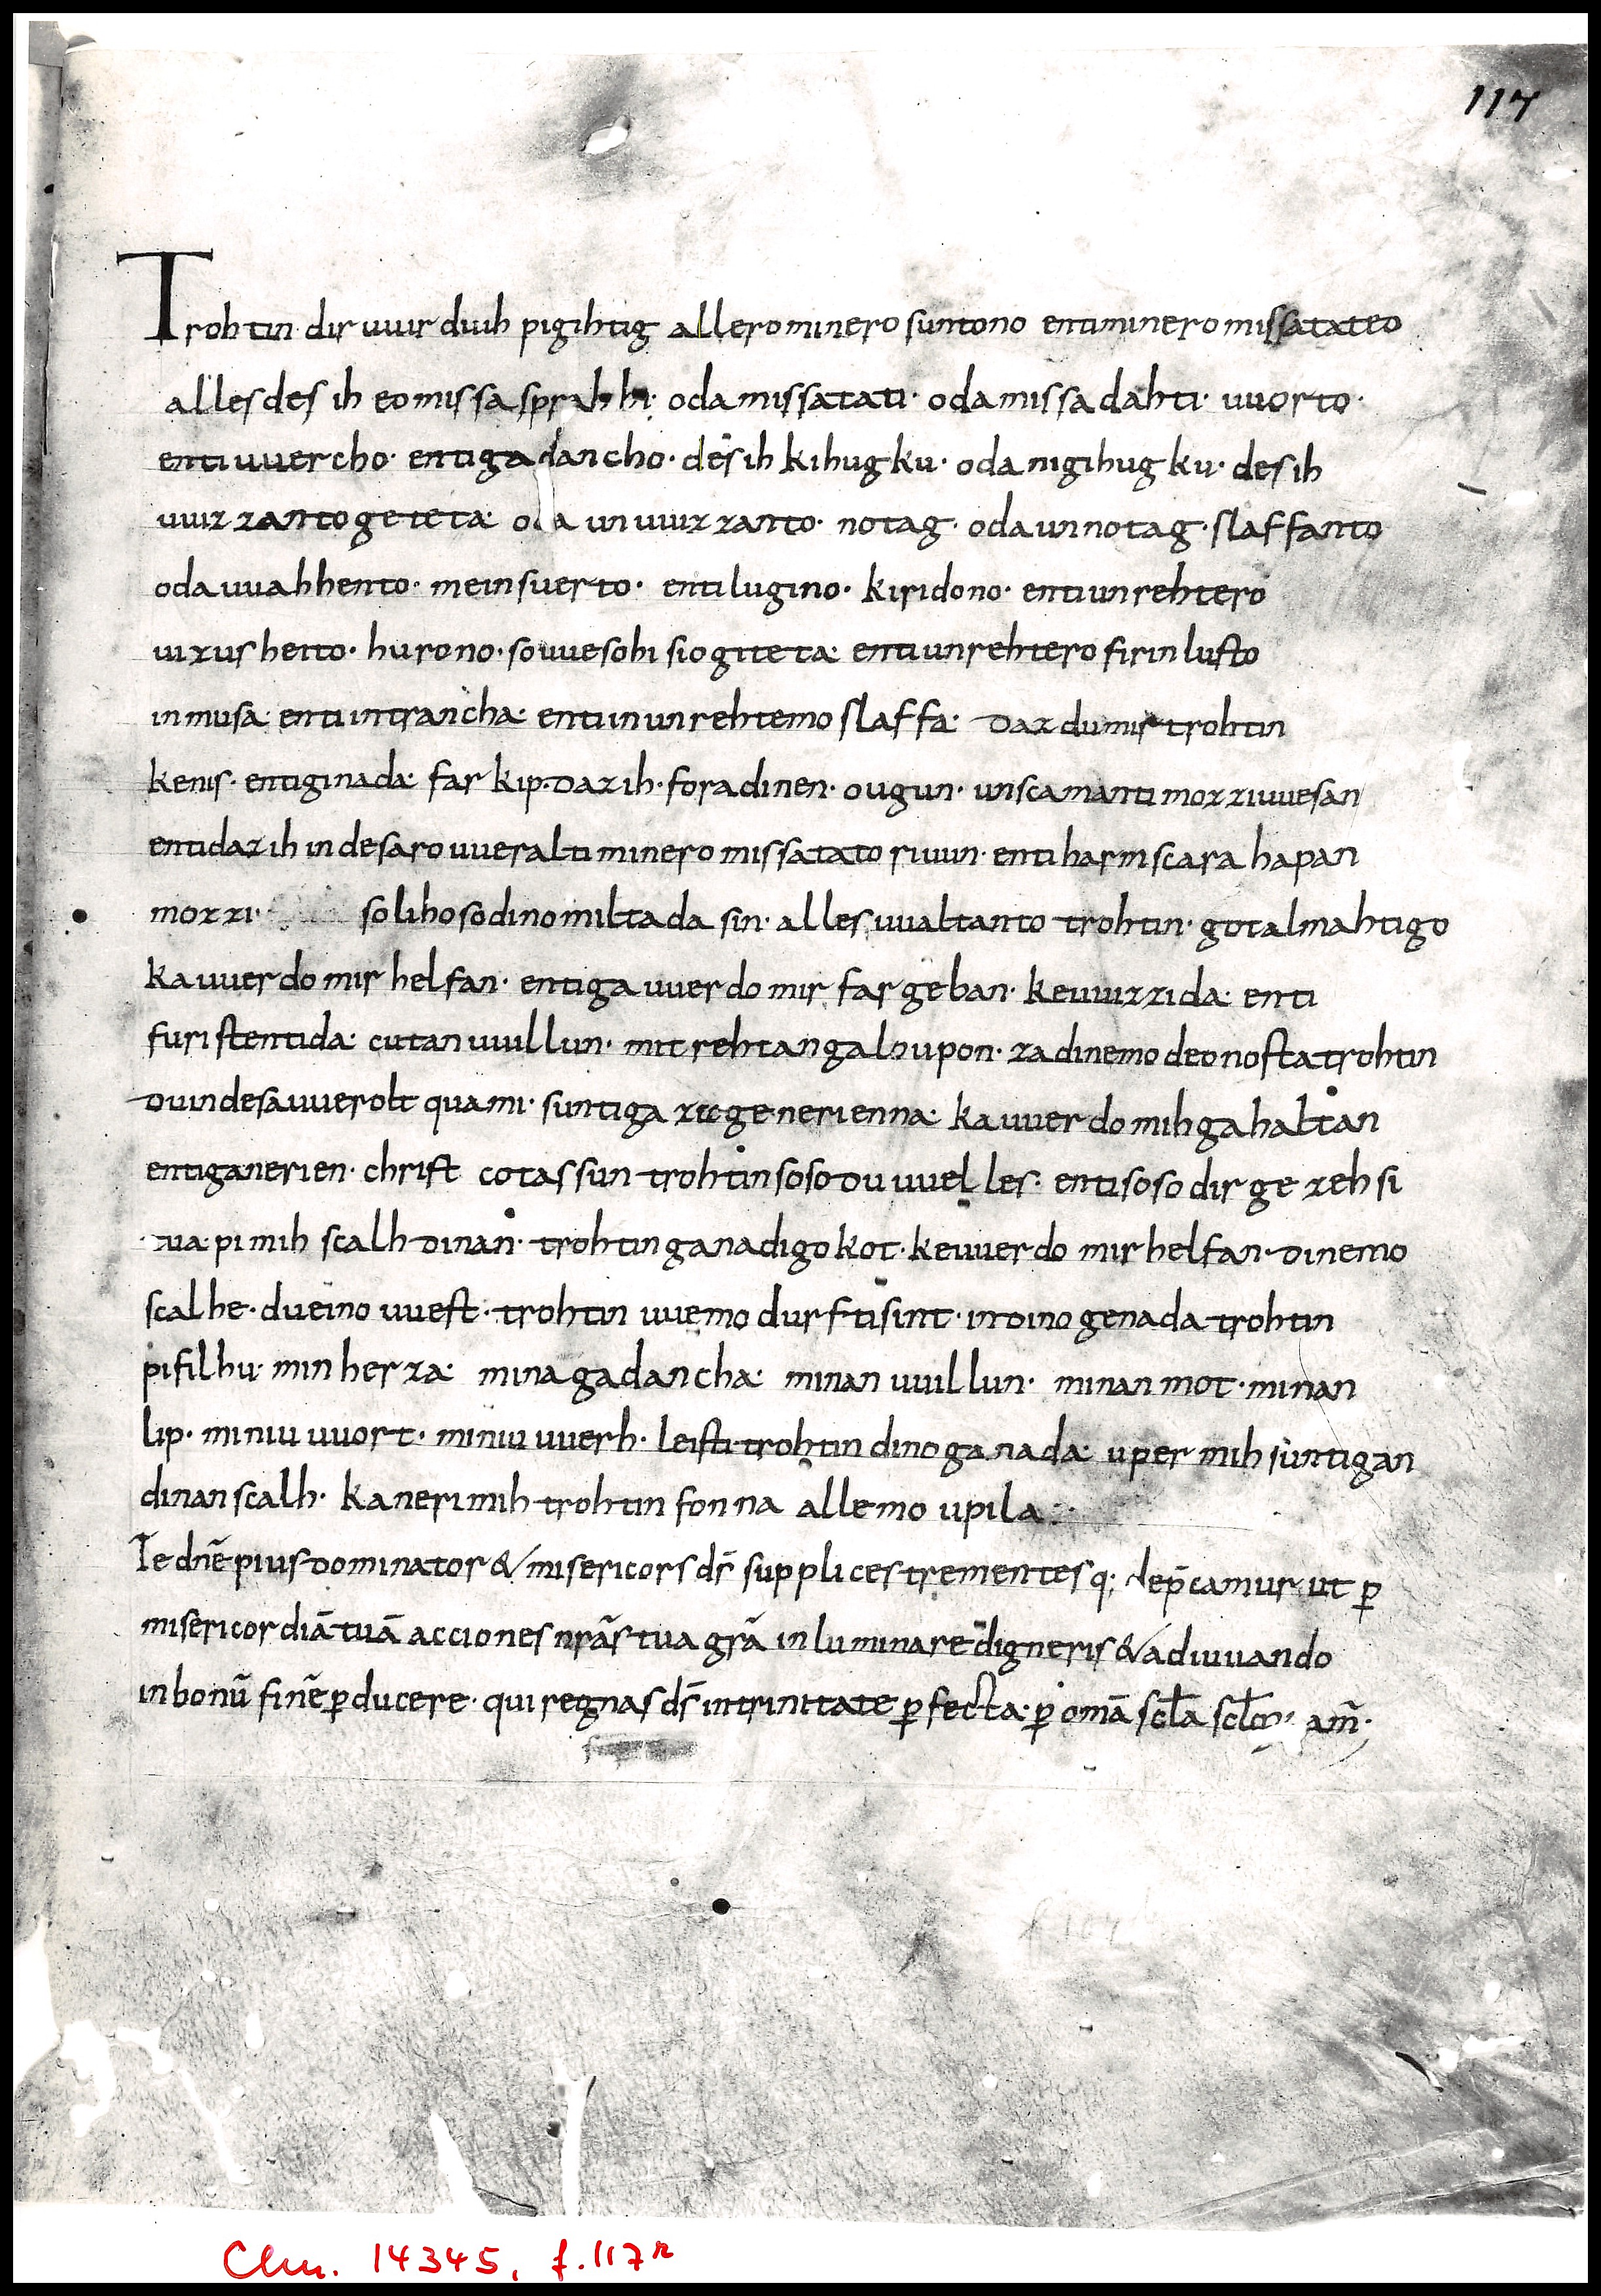 117
Trohtin dir uuir diuih pigihtig allero minero suntono enti minero missatateo
alles des ih eo missasprahhi· oda missatati· oda missadahti· uuorto·
enti uuercho· enti gadancho· des ih kihugku· oda nigihugku· des ih
uuizzanto geteta· oda unuuizzanto· notag· oda unnotag· slaffanto
oda uuahhento· meinsuerto· enti lugino· kiridono· enti unrehtero
uizusheito· hurono· so uueso hi sio giteta· enti unrehtero firinlusto
in musa· enti in trancha· enti in unrehtemo slaffa· Daz du mir trohtin
kenis· enti ginada· far kip· Daz ih· fora dinen· ougun· unscamanti mozzi uuesan
enti daz ih in desaro uueralti minero missatato riuun· enti harmscara hapan
mozzi· soliho so dino miltada sin· alles uualtanto trohtin· got almahtigo
kauuerdo mir helfan· enti gauuerdo mir fargeban· keuuizzida· enti
furistentida· cutan uuillun· mit rehtan galoupon· za dinemo deonosta trohtin
Du in desa uuerolt quami· suntiga zu generienna· kauuerdo mih gahaltan
enti ganerien· christ cotas sun trohtin soso du uuelles· enti soso dir gezeh si
tua· pi mih scalh dinan· trohtin ganadigo kot· keuuerdo mir helfan· dinemo
scalhe· du eino uuest· trohtin uuemo durfti sint· in dino genada trohtin
pifilhu· min herza· mina gadancha· minan uuillun· minan mot· minan
lip· miniu uuort· miniu uuerh· leisti· trohtin dino ganada· uper mih suntigan
dinan scalh· kaneri mih trohtin fonna allemo upila·
Te dnē pius dominator & misericors ds̄ supplices trementesq; dep̄camur ut p̱
misericordiā tuā acciones nr̄as tua grā inluminare digneris & adiuuando
in bonū finē p̱ducere· qui regnas ds̄ in trinitate p̱fecta· p̱ omā scl̄a scl̄or am̄·
Clm. 14345, f. 117r